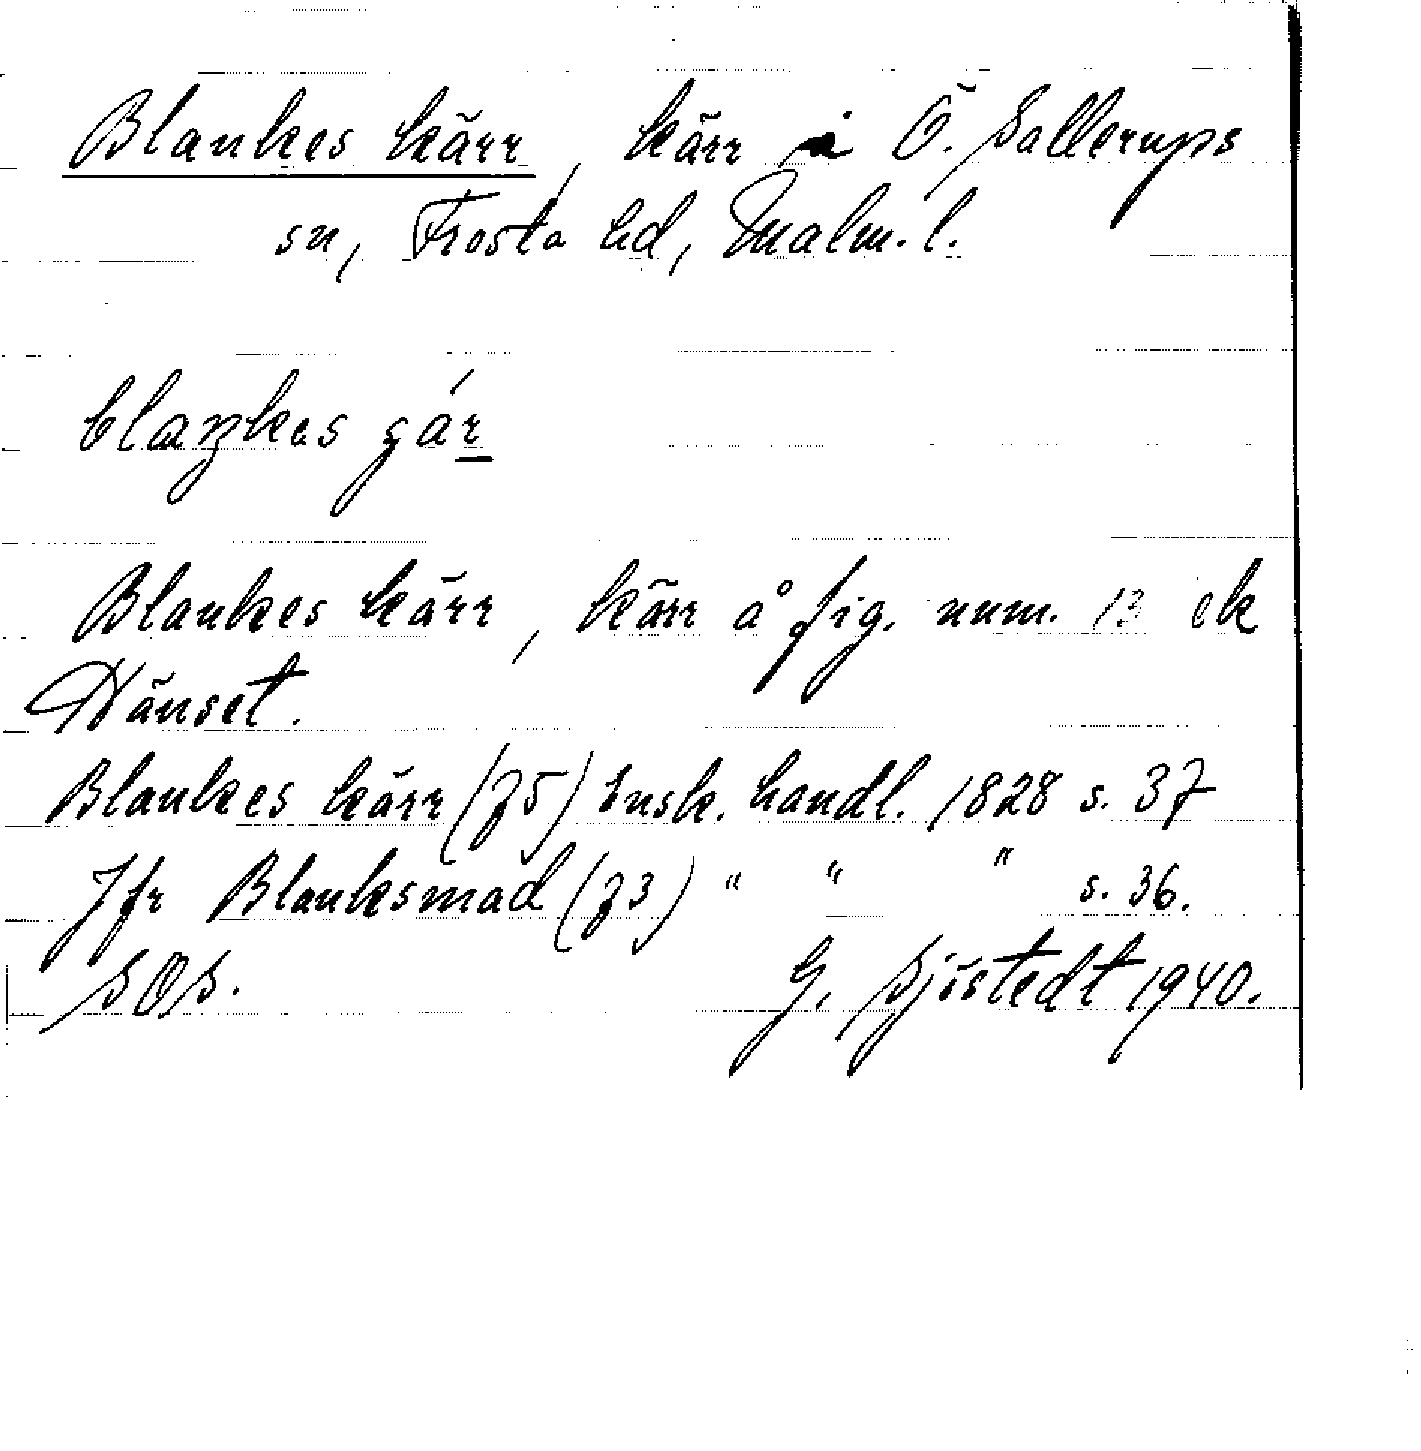 Blankes kärr, kärr i Ö. Sallerups
sn, Frosta hd, Malm. l.
blaŋkəs gár
Blankes kärr, kärr å fig. num. 13 ek
Hänset.
Blankes kärr (75) Ensk. handl. 1828 s. 37
Jfr Blanksmad (73) " " " s. 36.
SOS. G. Sjöstedt 1940.